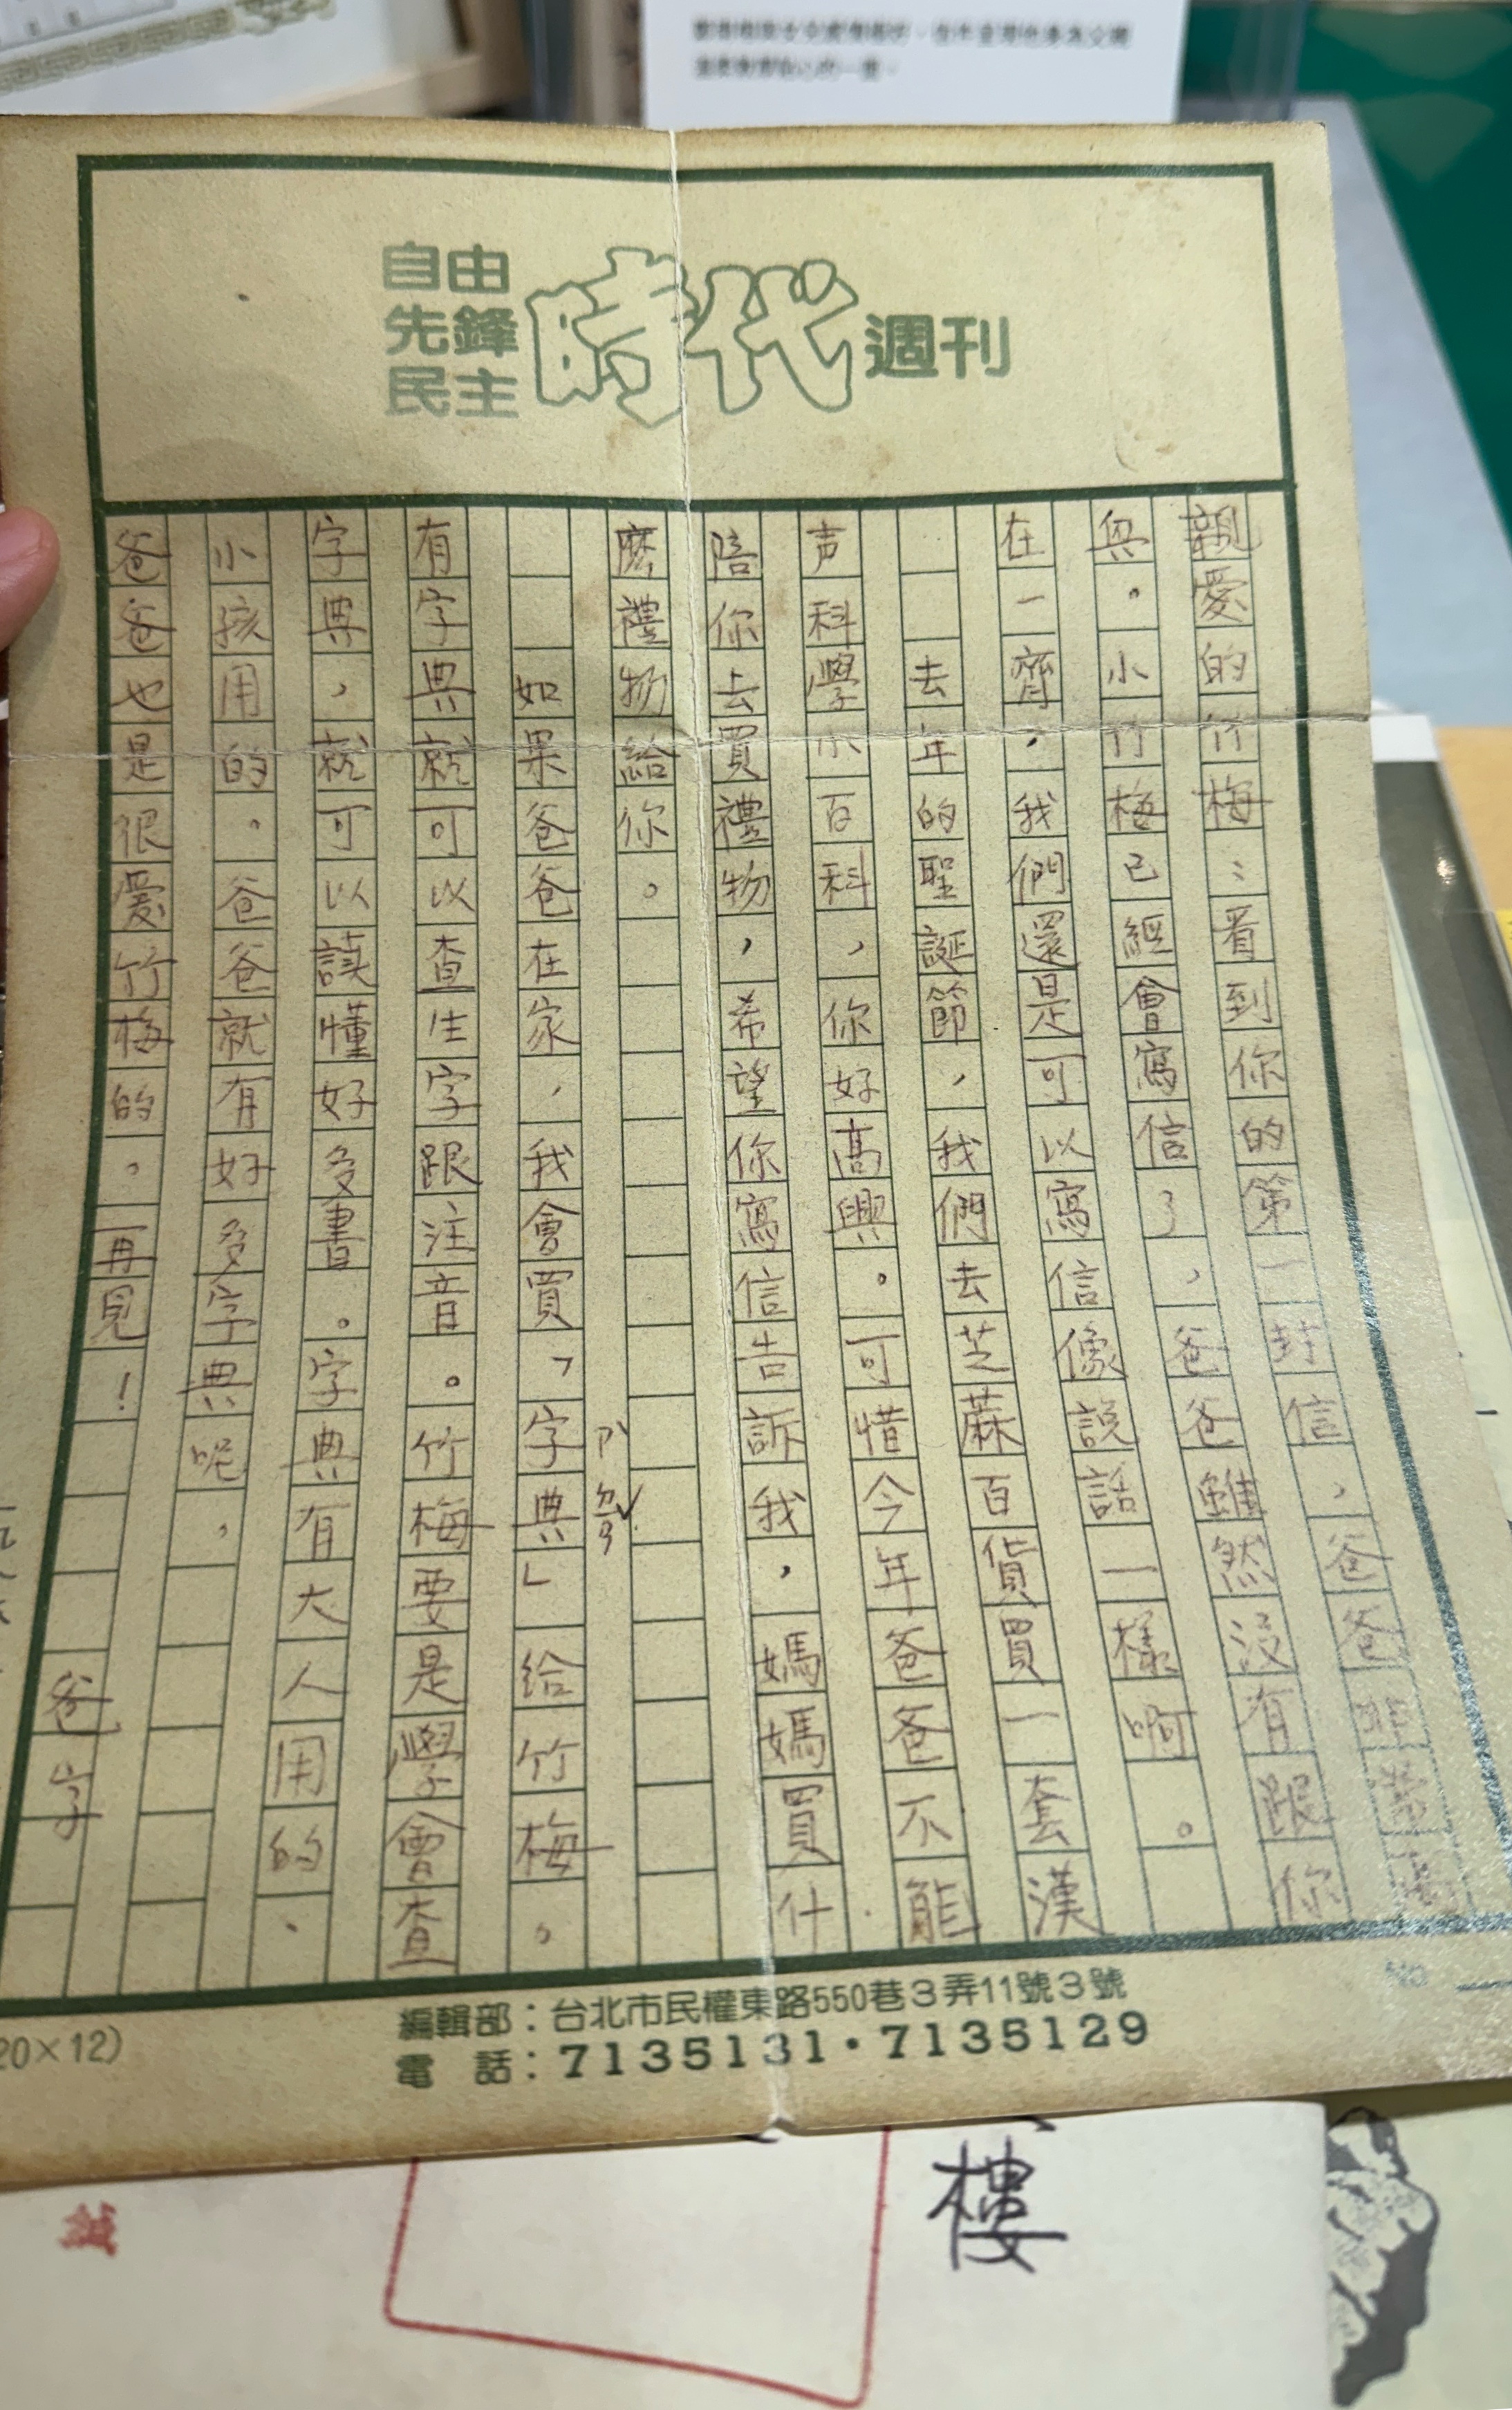 自由
先鋒
民主
時代
週刊
親愛的竹梅:看到你的第一封信,爸爸非常高
興。小竹梅已經會寫信了,爸爸雖然沒有跟你
在一齊,我們還是可以寫信像說話一樣啊。
去年的聖誕節,我們去芝蔴百貨買一套漢
声科學小百科,你好高興。可惜今年爸爸不能
陪你去買禮物,希望你寫信告訴我,媽媽買什
麼禮物給你。
如果爸爸在家,我會買「字典」給竹梅。
ㄗˋ ㄉㄧㄢˇ
有字典就可以查生字跟注音。竹梅要是學會查
字典,就可以讀懂好多書。字典有大人用的、
小孩用的。爸爸就有好多字典呢,
爸爸也是很愛竹梅的。再見!
爸字
編輯部:台北市民權東路550巷3弄11號3號
電 話:7135131・7135129
20×12)
No
樓